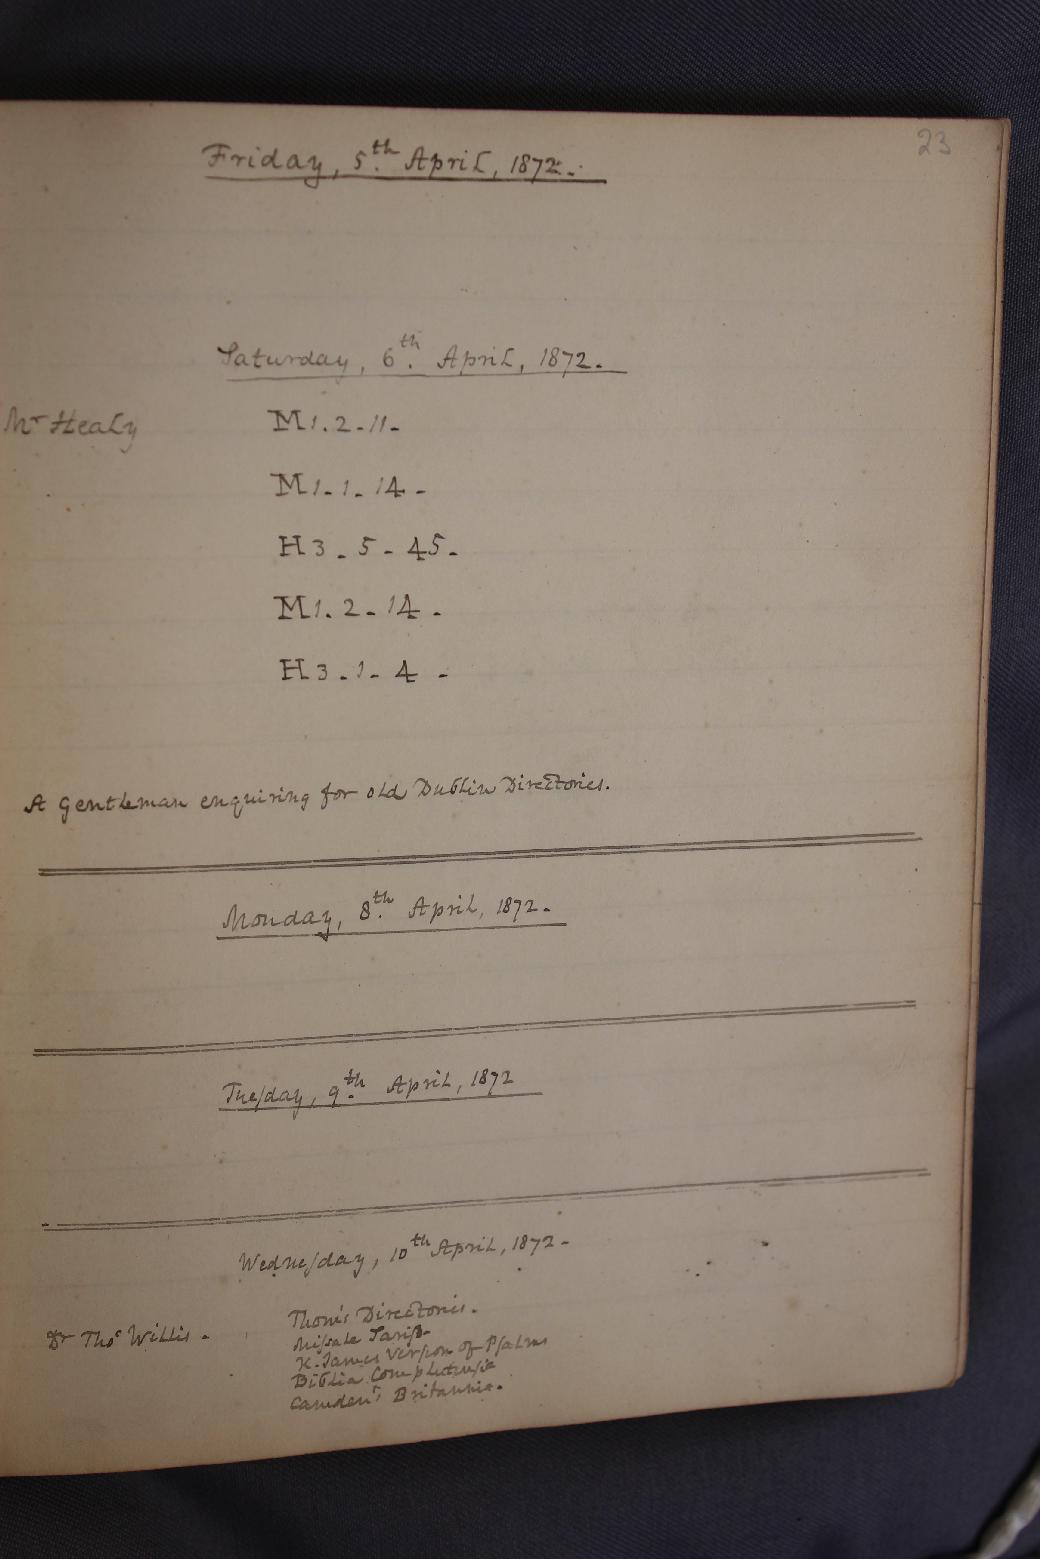 23
Friday, 5th. April, 1872.
Saturday, 6th. April, 1872.
Mr Healy M1.2-11-
M1-1-14-
H3-5-45-
M1.2-14-
H3-1-4-
A Gentleman enquiring for old Dublin Directories.
Monday, 8th. April, 1872.
Tuesday, 9th. April, 1872
Wednesday, 10th April, 1872-
Dr Thos Willis. Thom's Directories.
Missale
K. James Version of Psalms
Biblia Complutensia
Camden's Britannia.